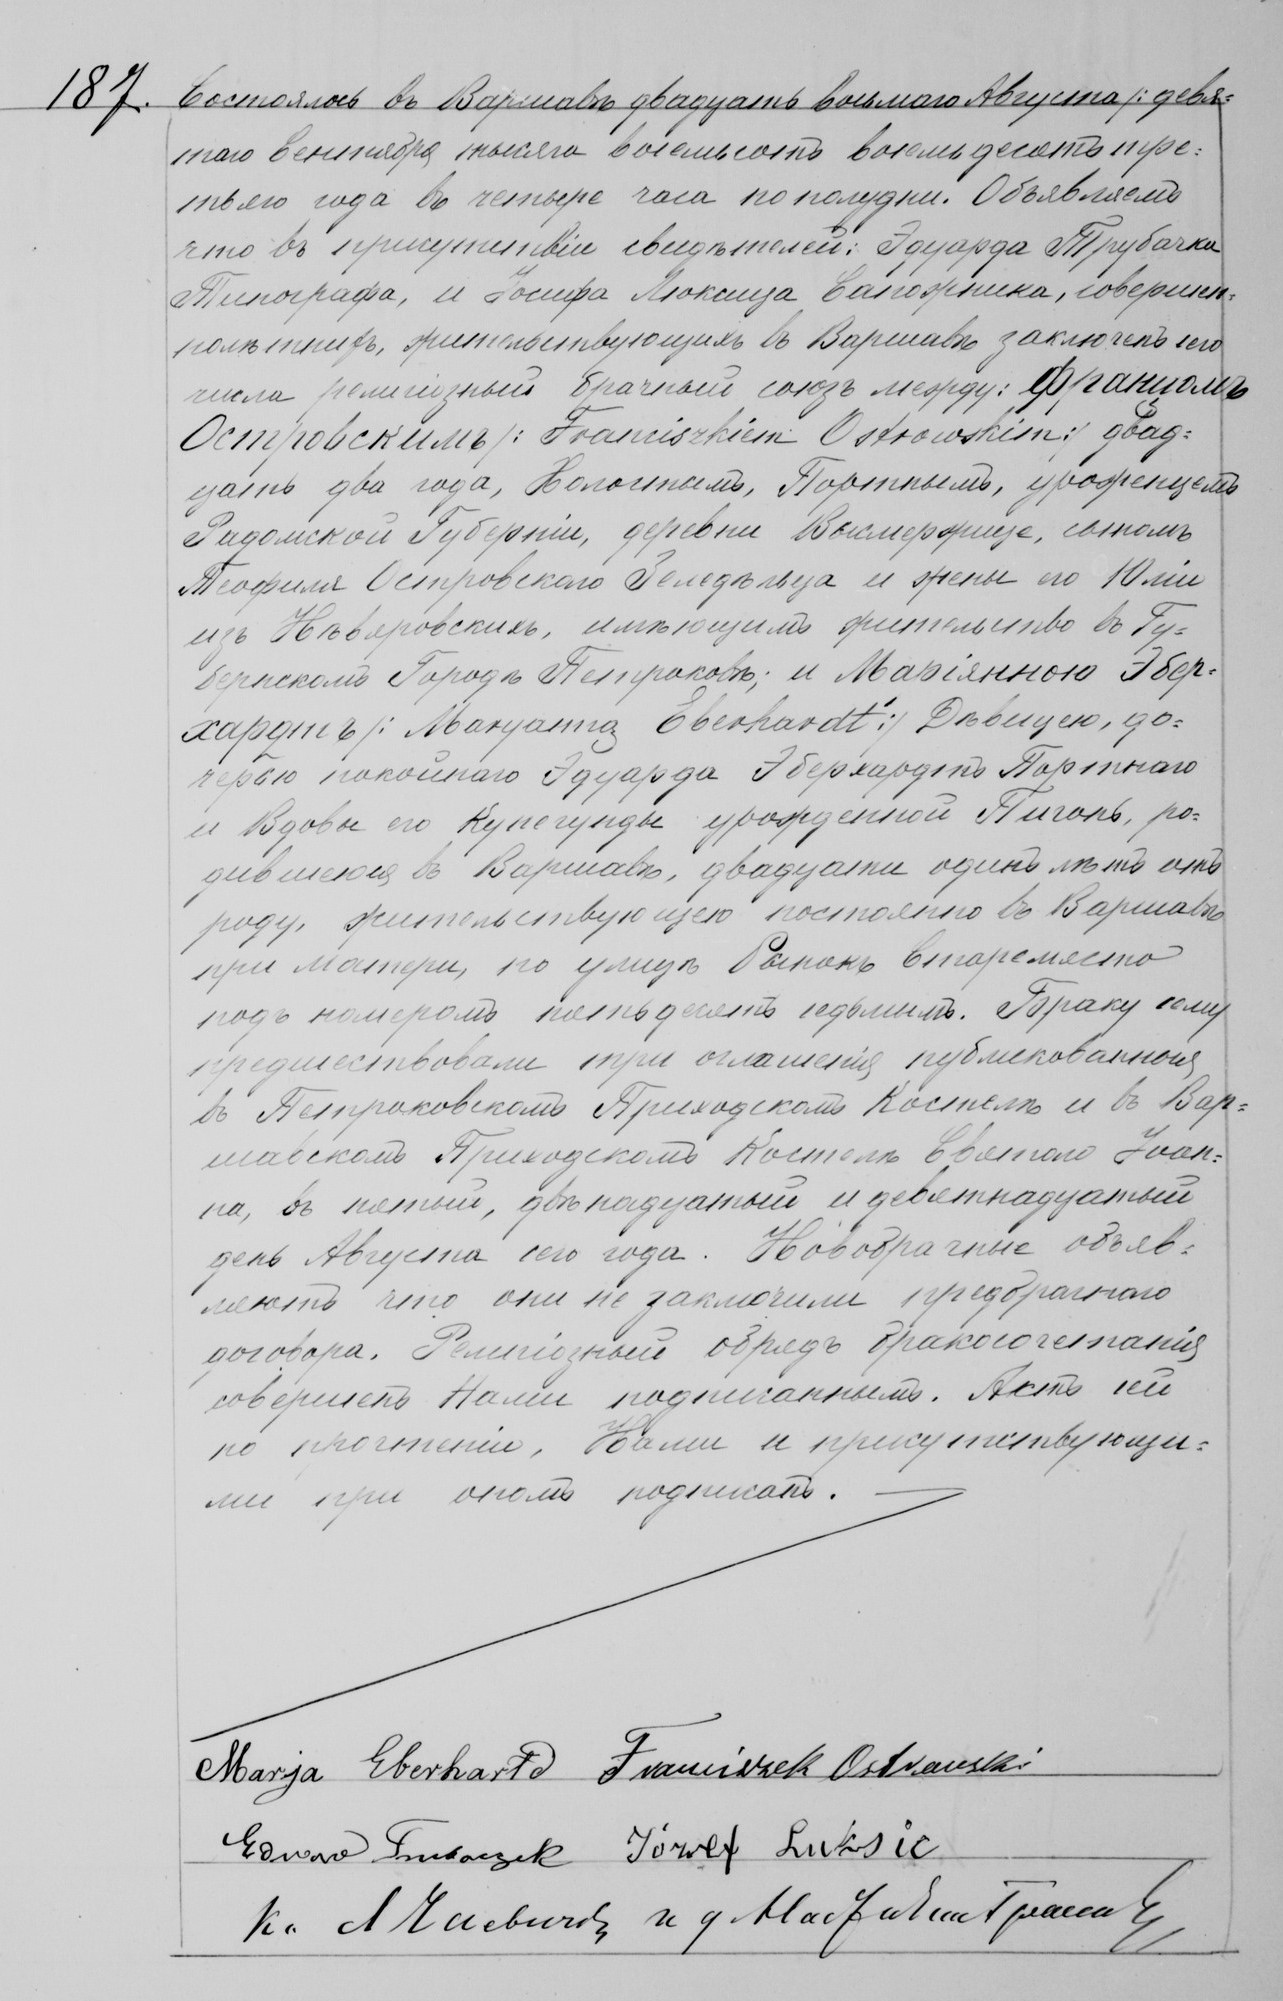 187. Состоялось въ Варшавѣ двадцать восьмаго Августа /: девя=
таго Сентября тысяча восемьсотъ восемьдесятъ тре=
тьяго года въ четыре часа пополудни. Объявляемъ
что въ присутствіи свидѣтелей: Эдуарда Трубачка
Типографа, и Іосифа Люксица Сапожника, совершен=
нолѣтнихъ, жительствующихъ въ Варшавѣ заключенъ сего
числа религіозный брачный союзъ между: Францомъ
Островскимъ /: Franciszkiem Ostrowskim :/ двад=
цать два года, Холостымъ, Портнымъ, уроженцемъ
Радомской Губерніи, деревни Высмержице, сыномъ
Теофиля Островскаго Земледѣльца и жены его Юліи
изъ Нѣвяровскихъ, имѣющимъ жительство въ Гу=
бернскомъ Городѣ Петроковѣ; и Маріянною Эбер=
хардтъ /: Maryanną Eberhardt :/ Дѣвицею, до=
черью покойнаго Эдуарда Эберхардтъ Портнаго
и Вдовы его Кунегунды урожденной Пигонь, ро=
дившеюся въ Варшавѣ, двадцати одинъ лѣтъ отъ
роду, жительствующею постоянно въ Варшавѣ
при матери, по улицѣ Рынокъ Старемясто
подъ номеромъ пятьдесятъ седьмымъ. Браку сему
предшествовали три оглашенія публикованныя
въ Петроковскомъ Приходскомъ Костелѣ и въ Вар=
шавскомъ Приходскомъ Костелѣ Святаго Іоан=
на, въ пятый, двѣнадцатый и девятнадцатый
день Августа сего года. Новобрачные объяв=
ляютъ что они не заключили предбрачнаго
договора. Религіозный обрядъ бракосочетанія
совершенъ Нами подписаннымъ. Актъ сей
по прочтеніи, Нами и присутствующи=
ми при ономъ подписанъ.
Marja Eberhartd Franciszek Ostrowski
Edward Trubaczek Józef Luksic